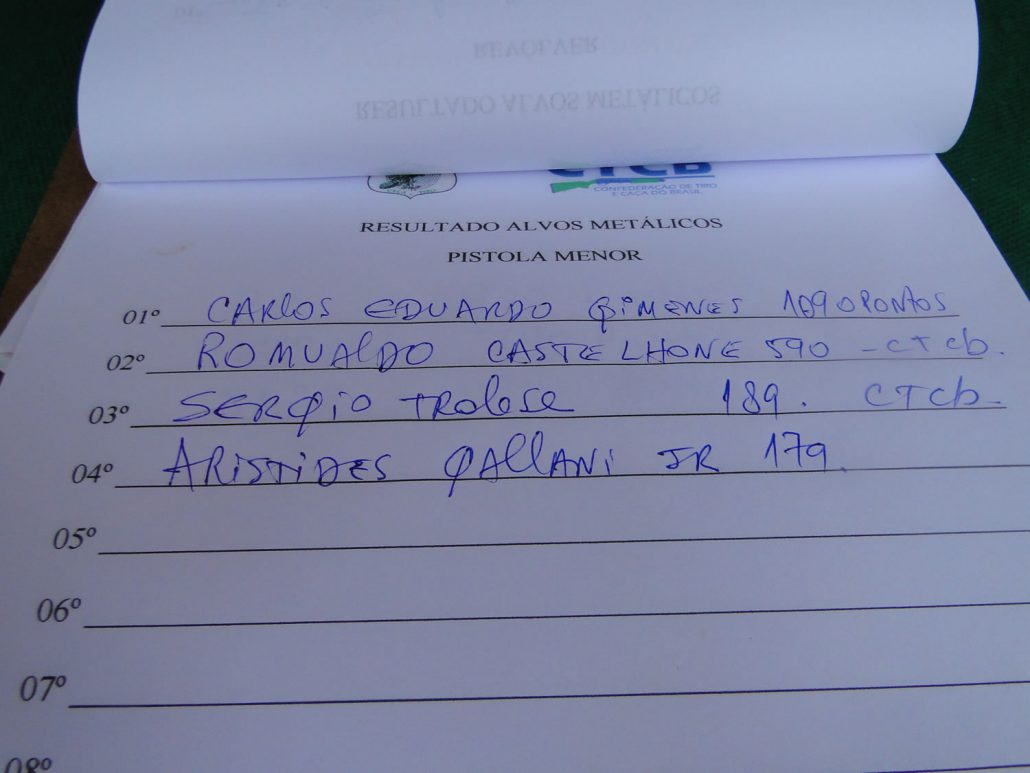 REVOLVER
RESULTADO ALVOS METÁLICOS
CTCB
CONFEDERAÇÃO DE TIRO
E CAÇA DO BRASIL
RESULTADO ALVOS METÁLICOS
PISTOLA MENOR
01º CARLOS EDUARDO GIMENES 1090PONTOS
02º ROMUALDO CASTELHONE 590 - CTCb.
03º SERGIO TROLESE 189. CTCb-
04º ARISTIDES GALLANI JR 179.
05º
06º
07º
08º